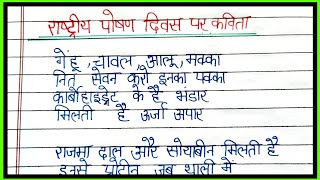 राष्ट्रीय पोषण दिवस पर कविता
गेंहू, चावल, आलू, मक्का
नित सेवन करो इनका पक्का
कार्बोहाइड्रेट के है भंडार
मिलती है ऊर्जा अपार
राजमा दाल और सोयाबीन मिलती है
इनसे प्रोटीन जब थाली में